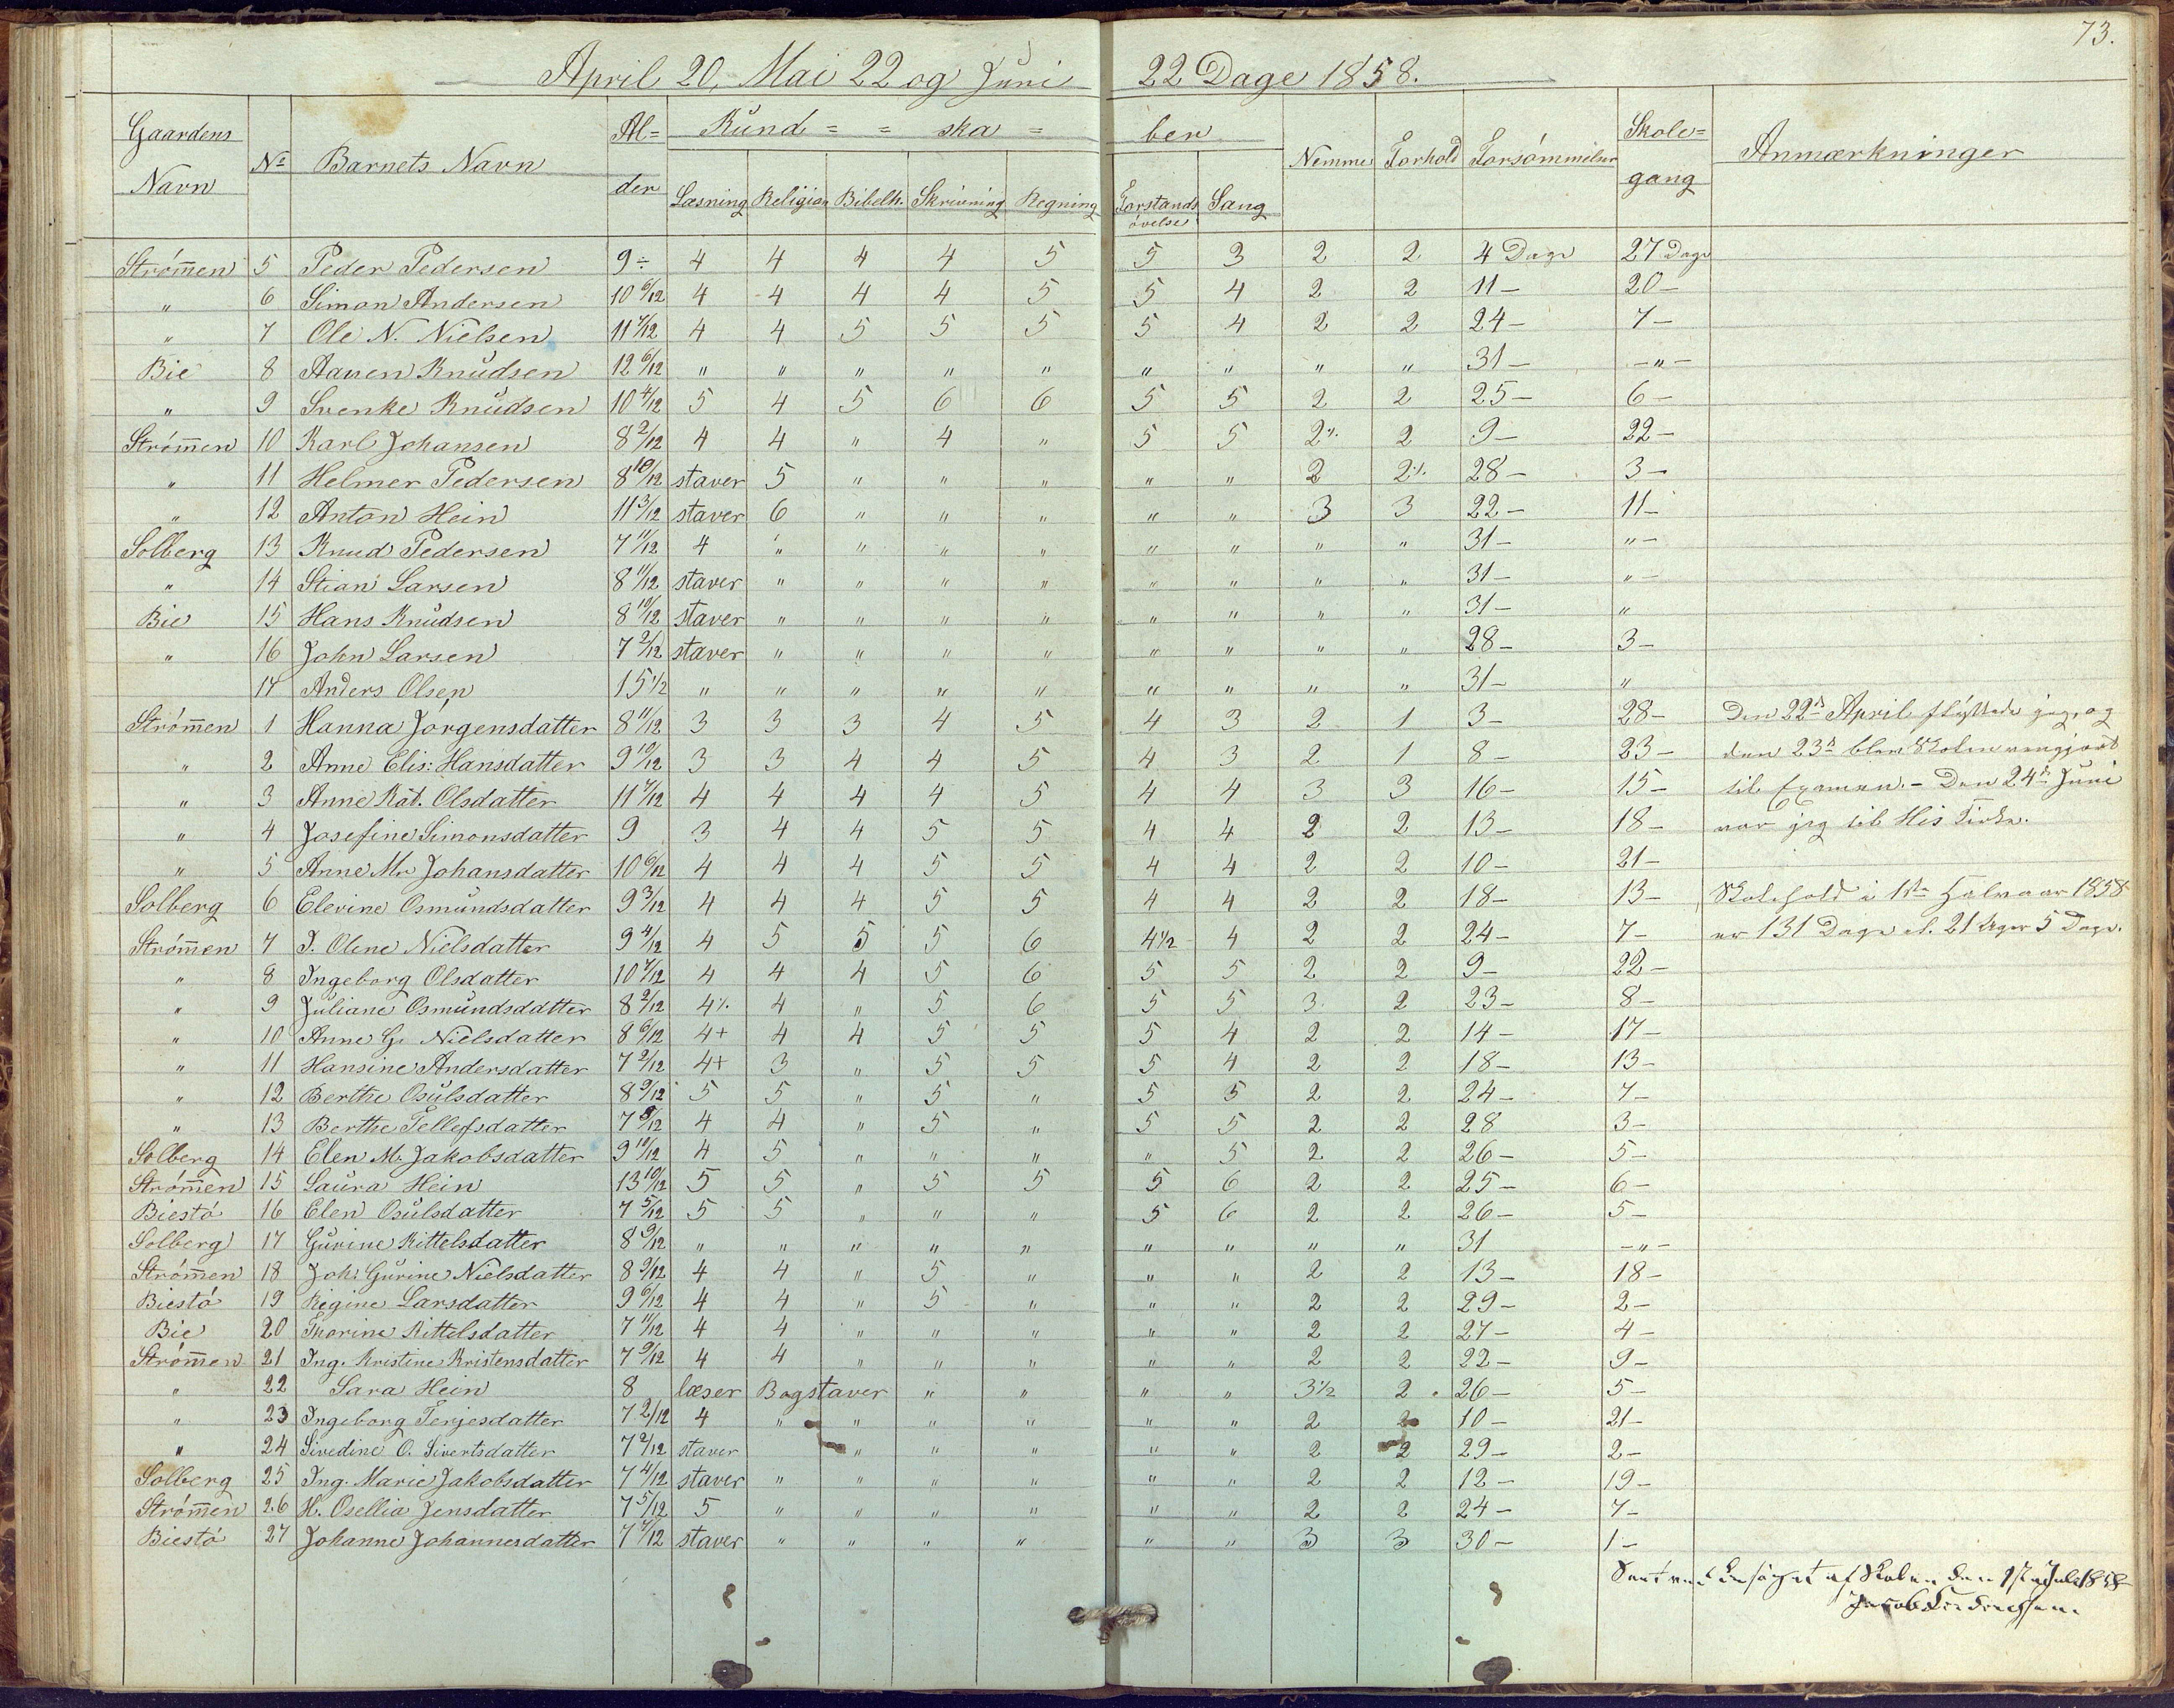 73.
April 20, Mai 22 og Juni 22 Dage 1858.
Gaardens Navn | No | Barnets Navn | Al=der | Kund= = ska = ber | Nemme | Forhold | Forsømmelser | Skole=gang | Anmærkninger
Læsning | Religion | Bibelh. | Skrivning | Regning | Forstands øvelse | Sang
Strøm̅en 5 Peder Pedersen 9÷ 4 4 4 4 5 5 3 2 2 4 Dage 27 Dage
" 6 Simon Andersen 10 6/12 4 4 4 4 5 5 4 2 2 11– 20–
" 7 Ole N. Nielsen 11 7/12 4 4 5 5 5 5 4 2 2 24– 7–
Bie 8 Aanen Knudsen 12 6/12 " " " " " " " " " 31– –"–
" 9 Svenke Knudsen 10 4/12 5 4 5 6 6 5 5 2 2 25– 6–
Strøm̅en 10 Karl Johansen 8 2/12 4 4 " 4 " 5 5 2% 2 9– 22–
" 11 Helmer Pedersen 8 10/12 staver 5 " " " " " 2 2% 28– 3–
" 12 Anton Hein 11 3/12 staver 6 " " " " " 3 3 22– 11–
Solberg 13 Knud Pedersen 7 11/12 4 " " " " " " " " 31– "–
" 14 Stian Larsen 8 11/12 staver " " " " " " " " 31– "–
Bie 15 Hans Knudsen 8 10/12 staver " " " " " " " " 31– "
" 16 John Larsen 7 2/12 staver " " " " " " " " 28– 3–
17 Anders Olsen 15 1/2 " " " " " " " " " 31– "
Strøm̅en 1 Hanna Jørgensdatter 8 11/12 3 3 3 4 5 4 3 2 1 3– 28– Den 22d April flyttede jeg, og
" 2 Anne Elis: Hansdatter 9 10/12 3 3 4 4 5 4 3 2 1 8– 23– den 23d blev Skolen rengjort
" 3 Anne Kat. Olsdatter 11 7/12 4 4 4 4 5 4 4 3 3 16– 15– til Examen. – Den 24de Juni
" 4 Josefine Simonsdatter 9 3 4 4 5 5 4 4 2 2 13– 18– var jeg til His
" 5 Anne Mr Johansdatter 10 6/12 4 4 4 5 5 4 4 2 2 10– 21–
Solberg 6 Elevine Osmundsdatter 9 3/12 4 4 4 5 5 4 4 2 2 18– 13– Skolehold i 1ste Halvaar 1858
Strøm̅en 7 J. Oline Nielsdatter 9 4/12 4 5 5 5 6 4 1/2 4 2 2 24– 7– er 131 Dage el. 21 Uger 5 Dage.
" 8 Ingeborg Olsdatter 10 7/12 4 4 4 5 6 5 5 2 2 9– 22–
" 9 Juliane Osmundsdatter 8 2/12 4% 4 " 5 6 5 5 3 2 23– 8–
" 10 Anne G. Nielsdatter 8 6/12 4+ 4 4 5 5 5 4 2 2 14– 17–
" 11 Hansine Andersdatter 7 2/12 4+ 3 " 5 5 5 4 2 2 18– 13–
" 12 Berthe Osulsdatter 8 9/12 5 5 " 5 " 5 5 2 2 24– 7–
" 13 Berthe Tellefsdatter 7 8/12 4 4 " 5 " 5 5 2 2 28 3–
Solberg 14 Elen M. Jakobsdatter 9 10/12 4 5 " " " " 5 2 2 26– 5–
Strøm̅en 15 Laura Hein 13 10/12 5 5 " 5 5 5 6 2 2 25– 6–
Biestø 16 Elen Osulsdatter 7 5/12 5 5 " " " 5 6 2 2 26– 5–
Solberg 17 Gurine Kittelsdatter 8 9/12 " " " " " " " " " 31 –"–
Strøm̅en 18 Joh: Gurine Nielsdatter 8 9/12 4 4 " 5 " " " 2 2 13– 18–
Biestø 19 Regine Larsdatter 9 6/12 4 4 " 5 " " " 2 2 29– 2–
Bie 20 Thorine Kittelsdatter 7 11/12 4 4 " " " " " 2 2 27– 4–
Strøm̅en 21 Ing. Kristine Kristensdatter 7 9/12 4 4 " " " " " 2 2 22– 9–
" 22 Sara Hein 8 læser Bogstaver " " " " 3 1/2 2 26– 5–
" 23 Ingeborg Terjesdatter 7 2/12 4 " " " " " " 2 2 10– 21–
" 24 Sivedine O. Sivertsdatter 7 2/12 staver " " " " " 2 2 29– 2–
Solberg 25 Ing. Marie Jakobsdatter 7 4/12 staver " " " " " " 2 2 12– 19–
Strøm̅en 26 H. Osellia Jensdatter 7 5/12 5 " " " " " " 2 2 24– 7–
Biestø 27 Johanne Johannesdatter 7 7/12 staver " " " " " " 3 3 30– 1–
af Skolen den 1ste Juli 1858
Jacob